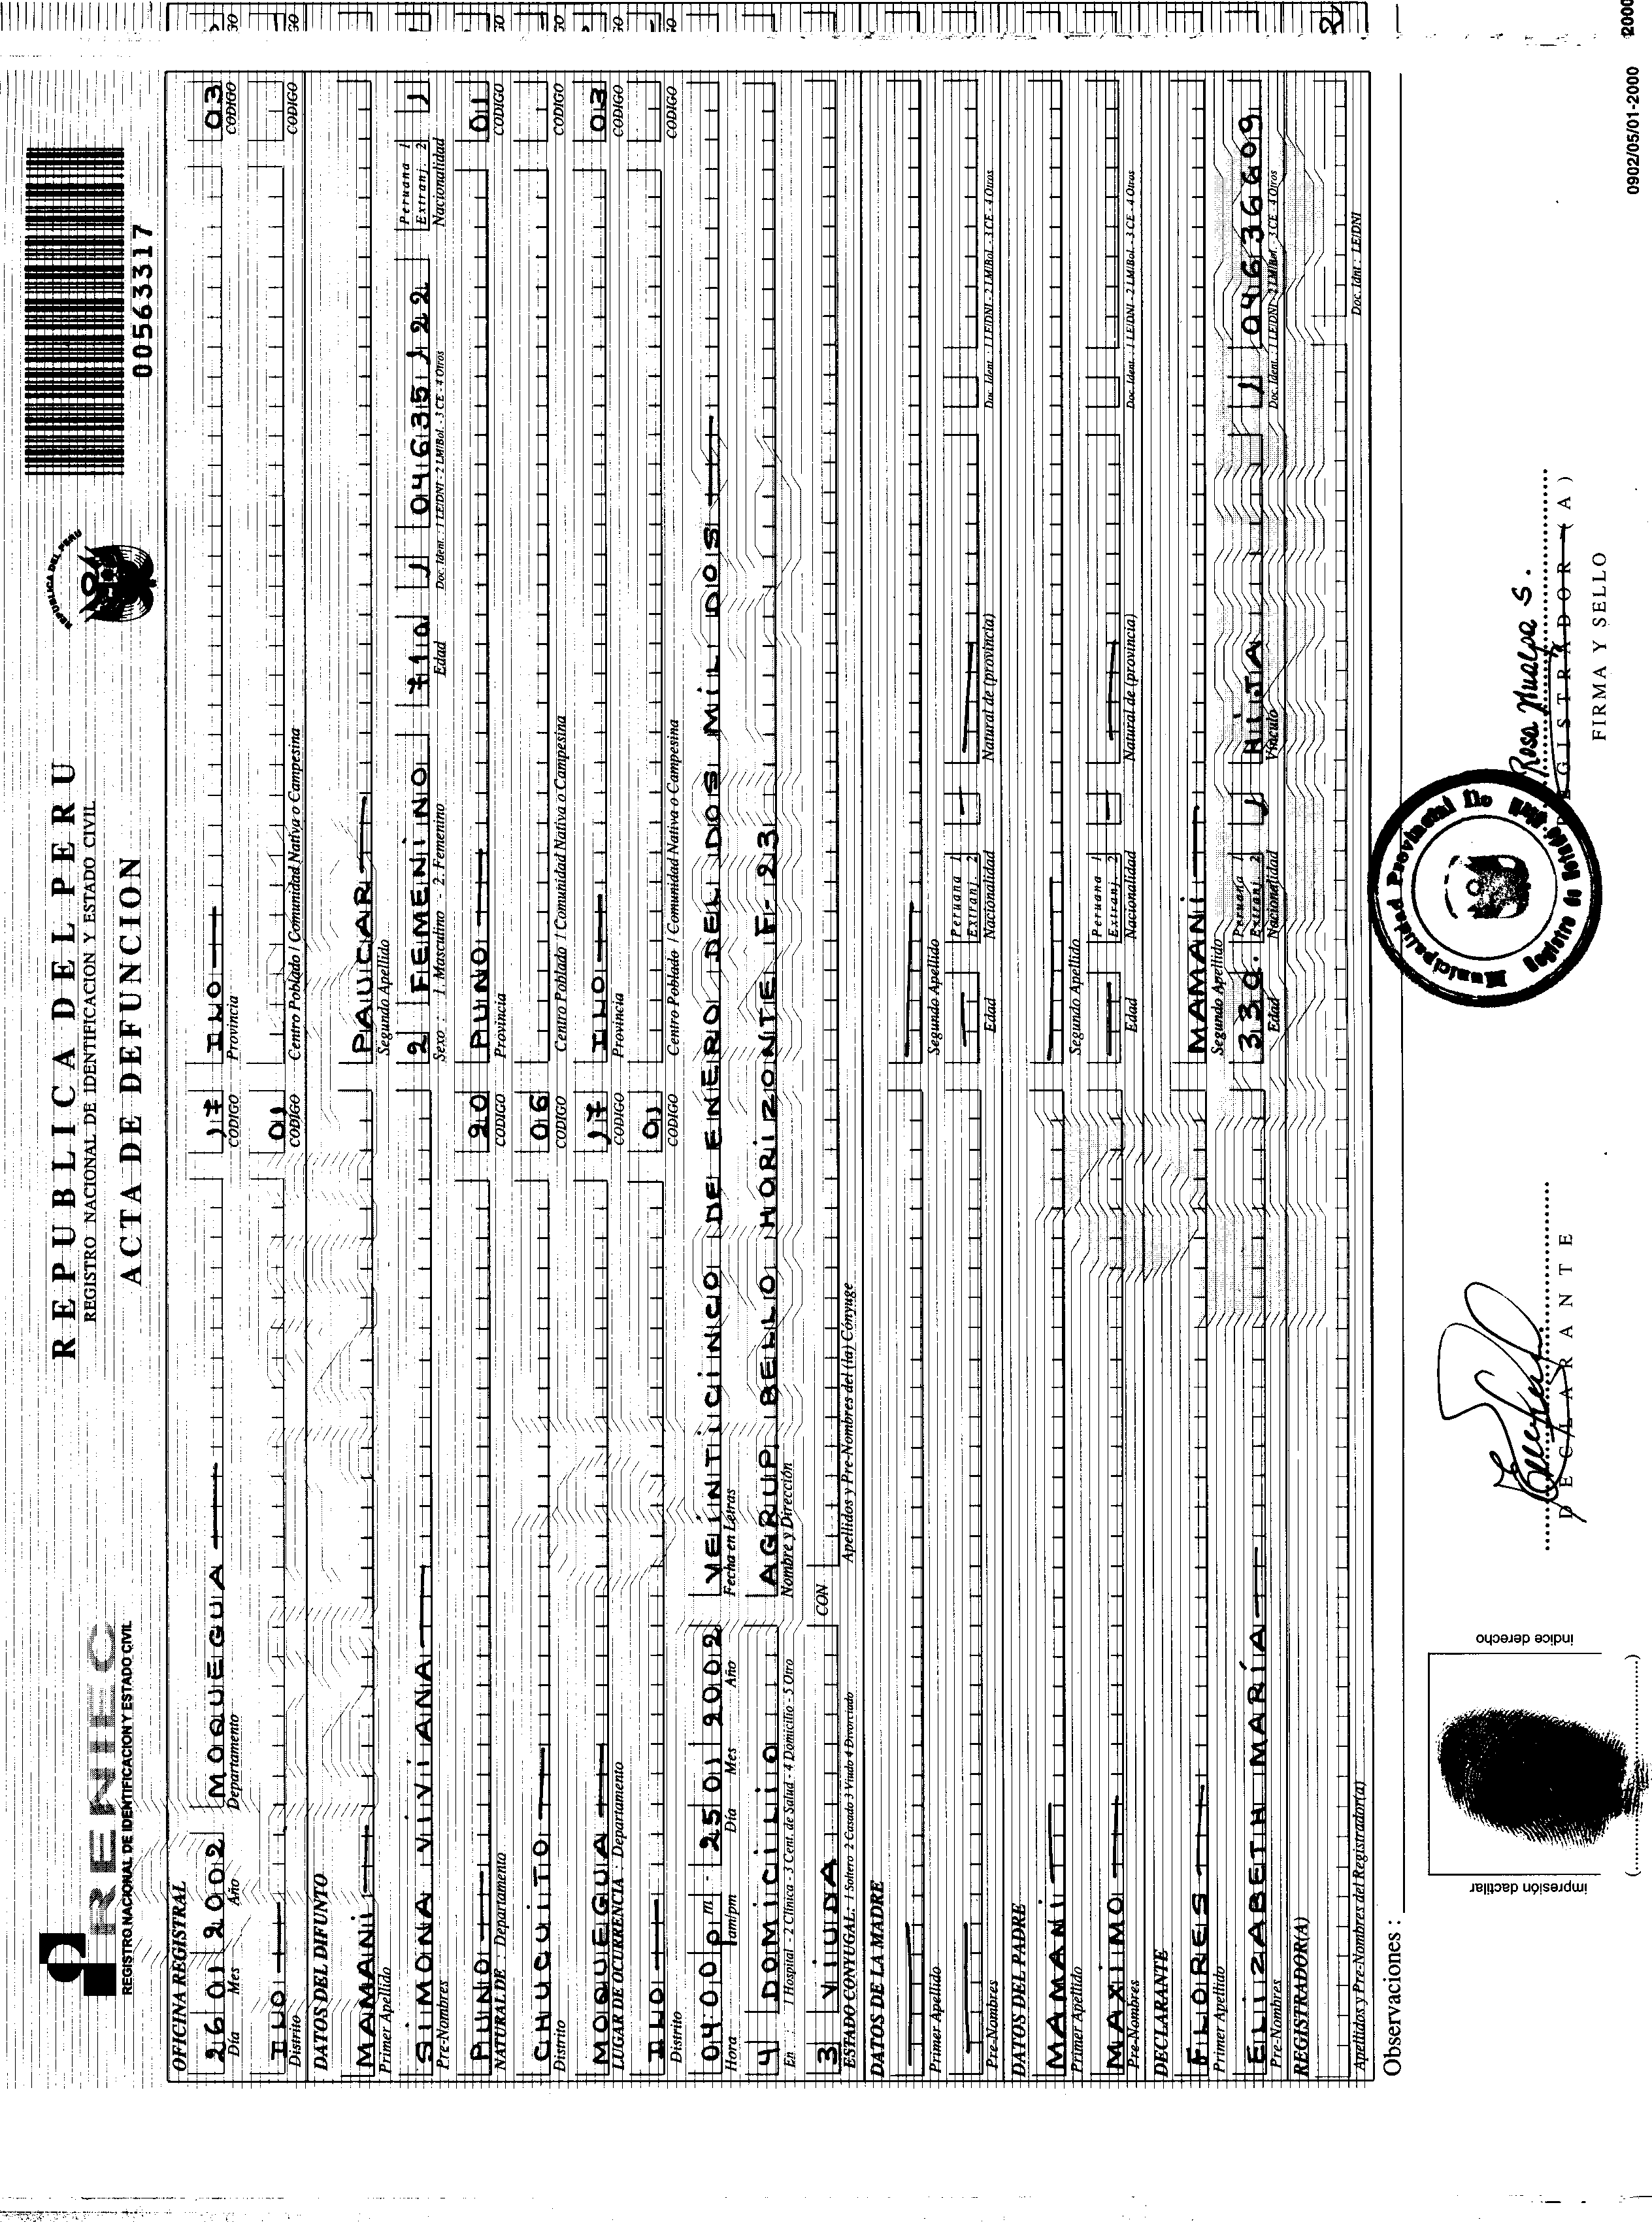 RENIEC
REGISTRO NACIONAL DE IDENTIFICACION Y ESTADO CIVIL
REPUBLICA DEL PERU
REGISTRO NACIONAL DE IDENTIFICACION Y ESTADO CIVIL
ACTA DE DEFUNCION
REPUBLICA DEL PERU
00563317
OFICINA REGISTRAL
26 01 2002 MOQUEGUA 17 ILO 03
Día Mes Año Departamento CODIGO Provincia CODIGO
ILO 01
Distrito CODIGO Centro Poblado / Comunidad Nativa o Campesina CODIGO
DATOS DEL DIFUNTO
MAMANI PAUCAR
Primer Apellido Segundo Apellido
SIMONA VIVIANA 2 FEMENINO 71a 1 04635122 Peruana 1 Extranj. 2 1
Pre-Nombres Sexo : 1. Masculino - 2. Femenino Edad Doc. Ident. 1 LE/DNI - 2 LM/Bol. - 3 CE - 4 Otros Nacionalidad
PUNO 20 PUNO 01
NATURAL DE : Departamento CODIGO Provincia CODIGO
CHUCUITO 06
Distrito CODIGO Centro Poblado / Comunidad Nativa o Campesina CODIGO
MOQUEGUA 17 ILO 03
LUGAR DE OCURRENCIA : Departamento CODIGO Provincia CODIGO
ILO 01
Distrito CODIGO Centro Poblado / Comunidad Nativa o Campesina CODIGO
0400pm - 25 01 2002 VEINTICINCO DE ENERO DEL DOS MIL DOS
Hora am/pm Día Mes Año Fecha en Letras
4 DOMICILIO AGRUP BELLO HORIZONTE F-23
En : 1 Hospital - 2 Clínica - 3 Cent. de Salud - 4 Domicilio - 5 Otro Nombre y Dirección
3 VIUDA CON
ESTADO CONYUGAL: 1 Soltero 2 Casado 3 Viudo 4 Divorciado Apellidos y Pre-Nombres del (la) Cónyuge
DATOS DE LA MADRE
Primer Apellido Segundo Apellido
Peruana 1 Extranj. 2
Pre-Nombres Edad Nacionalidad Natural de (provincia) Doc. Ident. : 1 LE/DNI - 2 LM/Bol. - 3 CE - 4 Otros
DATOS DEL PADRE
MAMANI
Primer Apellido Segundo Apellido
MAXIMO Peruana 1 Extranj. 2
Pre-Nombres Edad Nacionalidad Natural de (provincia) Doc. Ident. : 1 LE/DNI - 2 LM/Bol. - 3 CE - 4 Otros
DECLARANTE
FLORES MAMANI
Primer Apellido Segundo Apellido
ELIZABETH MARÍA 33a. Peruana 1 Extranj. 2 1 HIJA 1 04636609
Pre-Nombres Edad Nacionalidad Vínculo Doc. Ident. : 1 LE/DNI - 2 LM/Bol. - 3 CE - 4 Otros
REGISTRADOR(A)
Apellidos y Pre-Nombres del Registrador(a) Doc. Idnt : LE/DNI
Observaciones :
impresión dactilar
indice derecho
(....................)
DECLARANTE
Municipalidad Provincial Ilo
Rosa Hualpa S.
REGISTRADOR (A)
FIRMA Y SELLO
0902/05/01-2000
2000